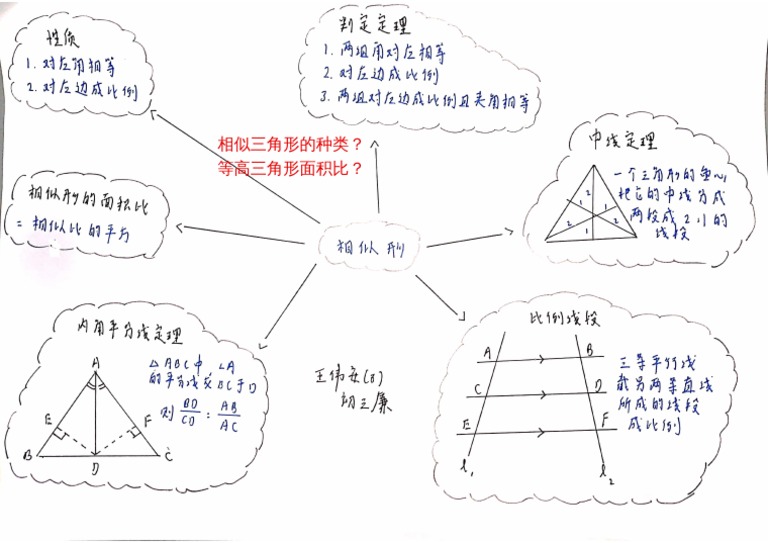 性质
1. 对应角相等
2. 对应边成比例
判定定理
1. 两组角对应相等
2. 对应边成比例
3. 两组对应边成比例且夹角相等
相似三角形的种类？
等高三角形面积比？
中线定理
一个三角形的重心
把它的中线分成
两段成2:1的
线段
2
1
1
2
1
2
相似形的面积比
= 相似比的平方
相似形
内角平分线定理
△ABC中，∠A
的平分线交BC于D
则 BD/CD = AB/AC
A
E
F
B
D
C
王伟安(8)
初三廉
比例线段
三条平行线
截另两条直线
所成的线段
成比例
A
B
C
D
E
F
l₁
l₂